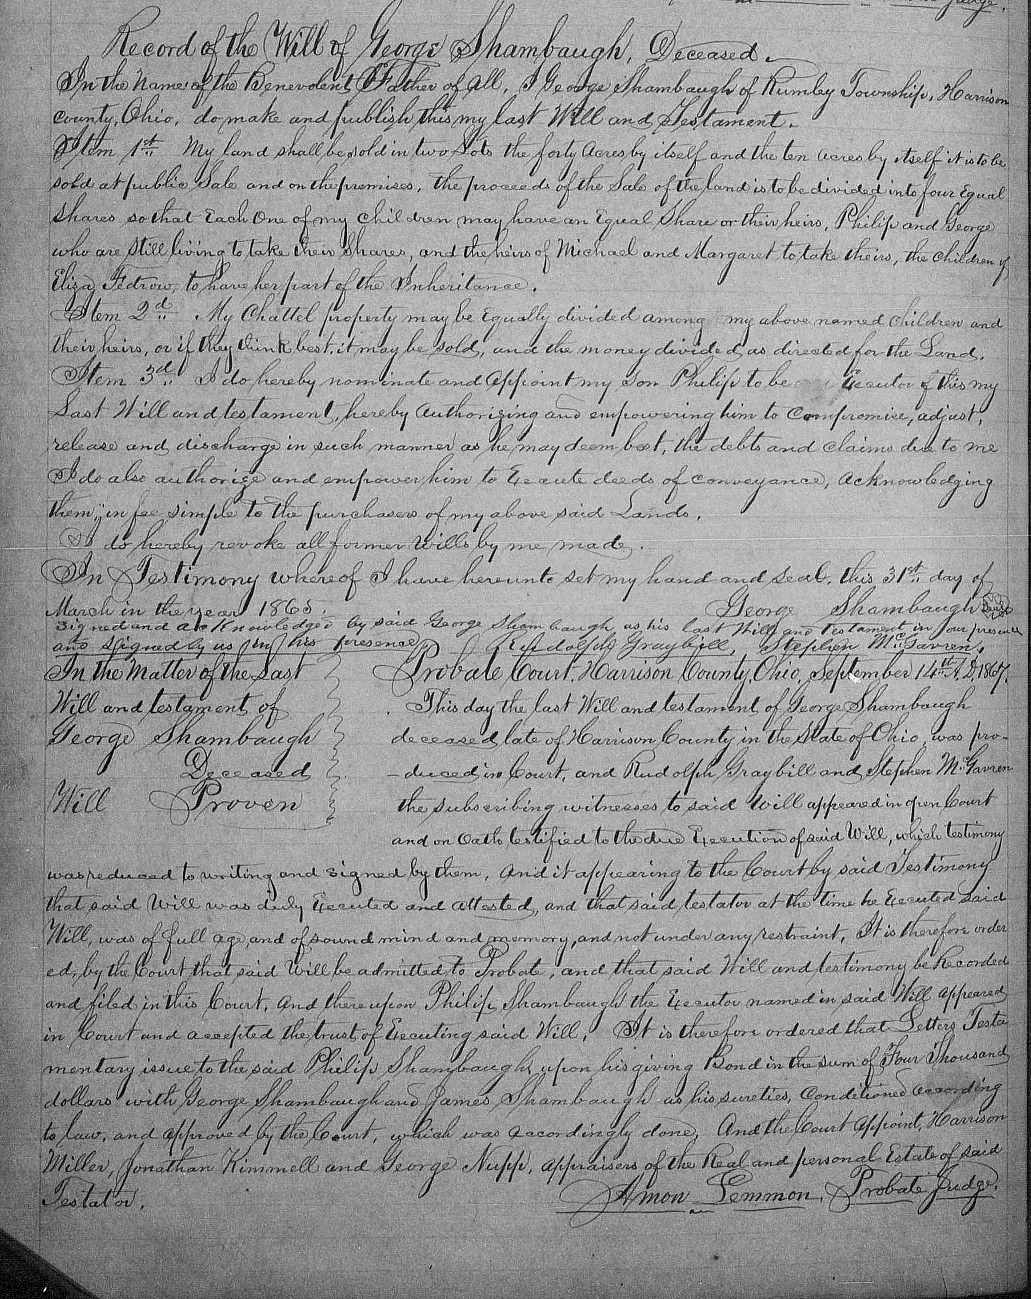 Judge.
Record of the Will of George Shambaugh, Deceased.
In the Name of the Benevolent Father of All, I George Shambaugh of Rumley Township, Harrison
County, Ohio, do make and publish this my last Will and Testament.
Item 1st My land shall be sold in two Lots the forty Acres by itself and the ten Acres by itself it is to be
sold at public Sale and on the premises, the proceeds of the Sale of the land is to be divided into four Equal
Shares so that Each One of my Children may have an Equal Share or their heirs, Philip and George
who are still living to take their Shares, and the heirs of Michael and Margaret to take theirs, the Children of
Eliza Fedrow, to have her part of the Inheritance.
Item 2d My Chattel property may be Equally divided among my above named Children and
their heirs, or if they think best, it may be sold, and the money divided as directed for the Land.
Item 3d I do hereby nominate and Appoint my Son Philip to be Executor of this my
Last Will and testament, hereby Authorizing and empowering him to Compromise, adjust,
release and discharge in such manner as he may deem best, the debts and claims due to me
I do also authorize and empower him to Execute deeds of conveyance, Acknowledging
them, in fee simple to the purchasers of my above said Lands.
I do hereby revoke all former Wills by me made.
In Testimony whereof I have hereunto set my hand and seal, this 31st day of
March in the year 1865. George Shambaugh Seal
Signed and acknowledged by said George Shambaugh as his last Will and testament in our presence
and signed by us in his presence Rudolph Graybill, Stephen McGavren.
In the Matter of the Last Probate Court, Harrison County, Ohio, September 14th A.D. 1867.
Will and testament of This day the last Will and testament of George Shambaugh
George Shambaugh deceased, late of Harrison County in the State of Ohio, was pro-
Deceased -duced in Court, and Rudolph Graybill and Stephen McGavren
Will Proven the subscribing witnesses to said Will appeared in open Court
and on Oath testified to the due Execution of said Will, which testimony
was reduced to writing and signed by them, And it appearing to the Court by said Testimony
that said Will was duly Executed and Attested, and that said testator at the time he Executed said
Will, was of full age, and of sound mind and memory, and not under any restraint, It is therefore order
ed, by the Court that said Will be admitted to Probate, and that said Will and testimony be Recorded
and filed in this Court, And thereupon Philip Shambaugh the Executor named in said Will appeared
in Court and accepted the trust of Executing said Will, It is therefore ordered that Letters Testa
mentary issue to the said Philip Shambaugh, upon his giving Bond in the sum of Four Thousand
dollars with George Shambaugh and James Shambaugh as his sureties, Conditioned according
to law, and approved by the Court, which was accordingly done, And the Court Appoint, Harrison
Miller, Jonathan Kimmell and George Nupp, appraisers of the Real and personal Estate of said
Testator. Amon Lemmon, Probate Judge.